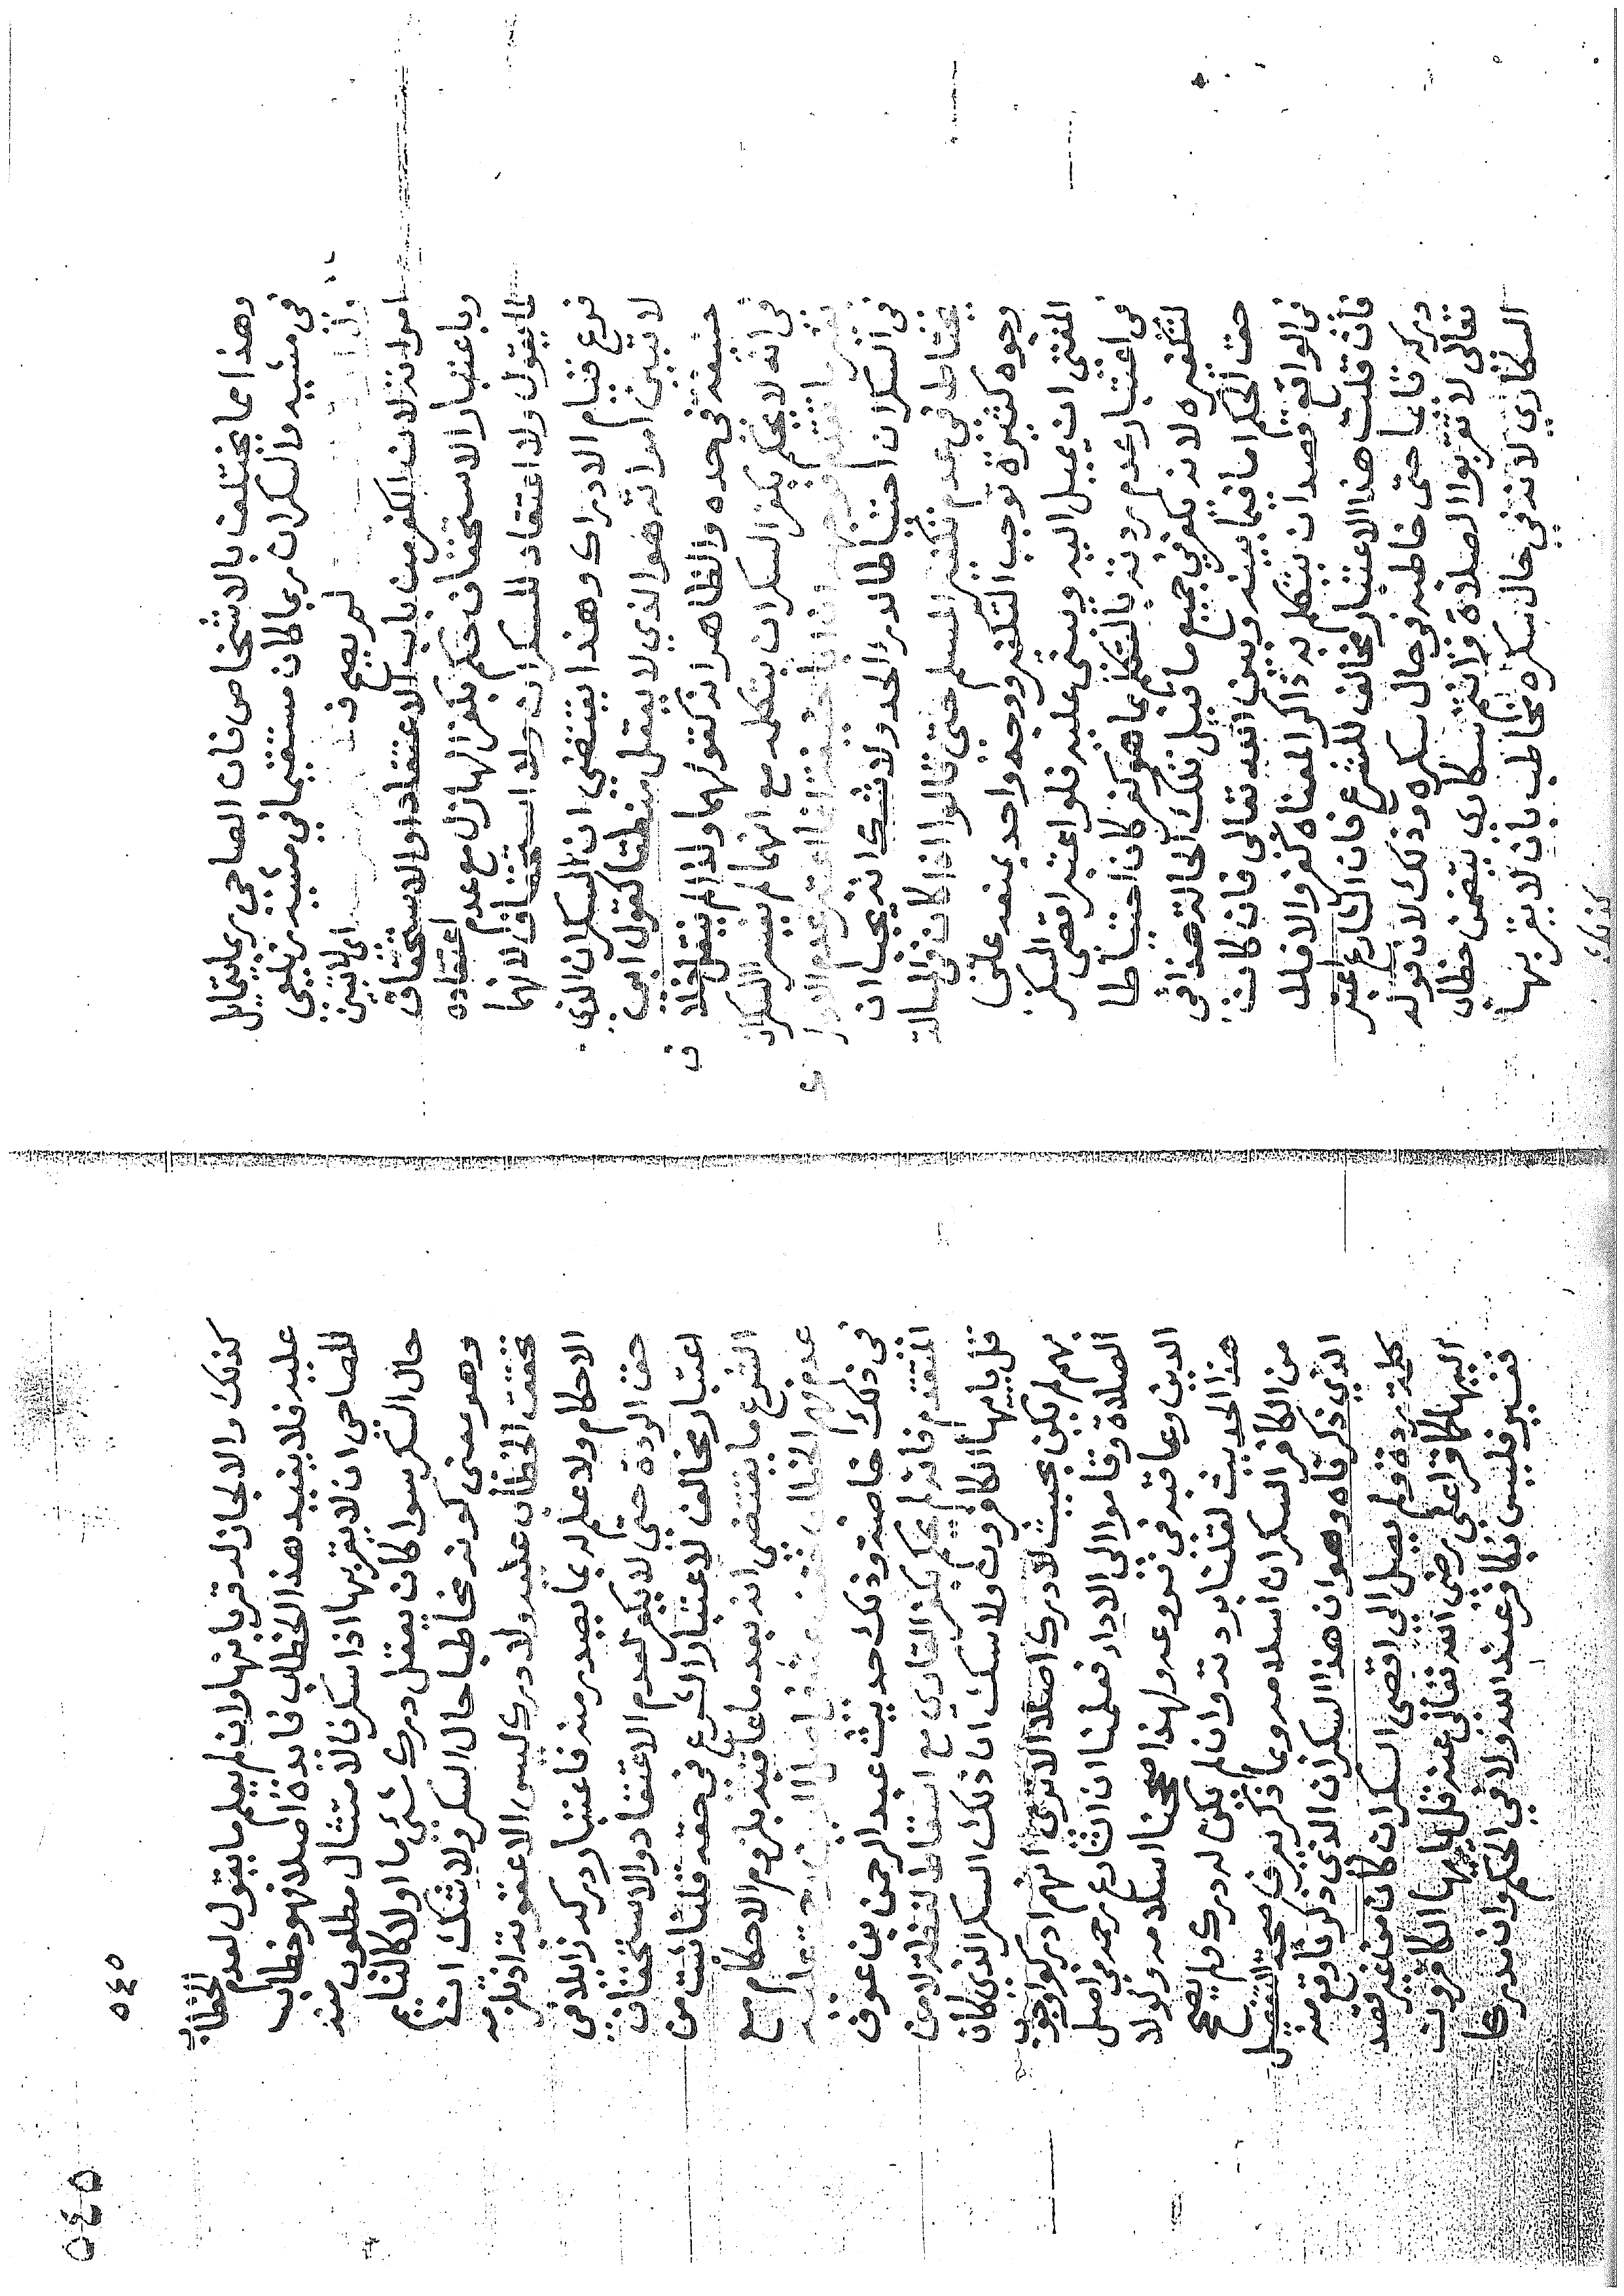 وهذا مما يختلف بالاشخاص فان الصاحي ربما يتمايل
في مشيه والسكران ربما كان مستقيما في مشيه
لم يصح
امواته لان الكفر من باب الاعتقاد او الاستخفاف
وباعتبار الاستخفاف حكم بكفر الهازل مع عدم اعتقاده
لما يقول ولا اعتقاد للسكران ولا استخفاف لانهما
فرع قيام الادراك وهذا يقتضي ان السكران الذي
لا تبين امراته هو الذي لا يعقل منطقا كقول ابي
حنيفة في حده والظاهر انه كقولهما ولذا لم ينقل خلاف
في انه لا يحكم بكفر السكران بتكلمه مع انهما لم يفسرا السكران

في السكران احتياطا لدرء الحد ولا شك انه يجب ان
يحتاط في عدم تكفير المسلم حتى قالوا اذا كان في المسالة
وجوه كثيرة توجب التكفير ووجه واحد يمنعه على
المفتي ان يميل اليه ويبني عليه فلو اعتبر اقصى السكر
في اعتبار عدم ردته بالتكلم بما هو كفر كان احتياطا
لتكفيره لانه يكفر في جميع ما قبل تلك الحالة هذا في
حق الحكم اما فيما بينه وبين الله تعالى فان كان
في الواقع قصد ان يتكلم به ذاكرا لمعناه كفر والا فلا
فان قلت هذا الاعتبار مخالف للشرع فان الشارع اعتبر
دركه قائما حتى خاطبه في حال سكره وذلك لان قوله
تعالى لا تقربوا الصلاة وانتم سكارى يتضمن خطاب
السكارى لانه في حال سكره مخاطب بان لا يقربها
كذلك
٥٤٥
٥٤٥
كذلك والا لجاز له قربانها وان لم يعلم ما يقول لعدم الخطاب
عليه فلا يفيد هذا الخطاب فائدة اصلا فهو خطاب
للصاحي ان لا يقربها اذا سكر فالامتثال مطلوب منه
حال السكر سوا كان يعقل درك شيء ما اولا كالنايم
وهو معنى كونه مخاطبا حال السكر ولا شك ان
تحقق الخطاب عليه ولا درك ليس الا عقوبة اذ تلزمه
الاحكام ولا علم له بما يصدر منه فاعتبار دركه زايلا في
حق الردة حتى لا يكفر لعدم الاعتقاد والاستخفاف
اعتبار مخالف لاعتبار الشرع في حقه قلنا ثبت من
الشرع ما يقتضي انه بعد ما عاقبه بلزوم الاحكام مع
عدم فهم الخطاب
في ذلك خاصة وذلك حديث عبد الرحمن بن عوف
المتقدم فانه لم يحكم بكفر القاري مع اسقاط لفظة لا من
قل يا ايها الكافرون ولا شك ان ذلك السكر الذي كان
بهم لم يكن بحيث لا درك اصلا الا ترى انهم ادركوا وجوب
الصلاة وقاموا الى الادا فعلمنا ان الشارع رحمه في اصل
الدين وعاقبه في فروعه ولهذا صححنا اسلامه ولولا
هذا الحديث لقلنا بردته وان لم يكن له درك ولم نصحح
من الكافر السكران اسلامه وبما ذكر يترجح صحة التفصيل
الذي ذكرناه وهو ان هذا السكران الذي ذكرنا وقع منه
كلمة ردة ولم يصل الى اقصى السكران كان من غير قصد
اليها كما قرا علي رضي الله تعالى عنه قل يا ايها الكافرون
فغير فليس بكافر عند الله ولا في الحكم وان مدركا